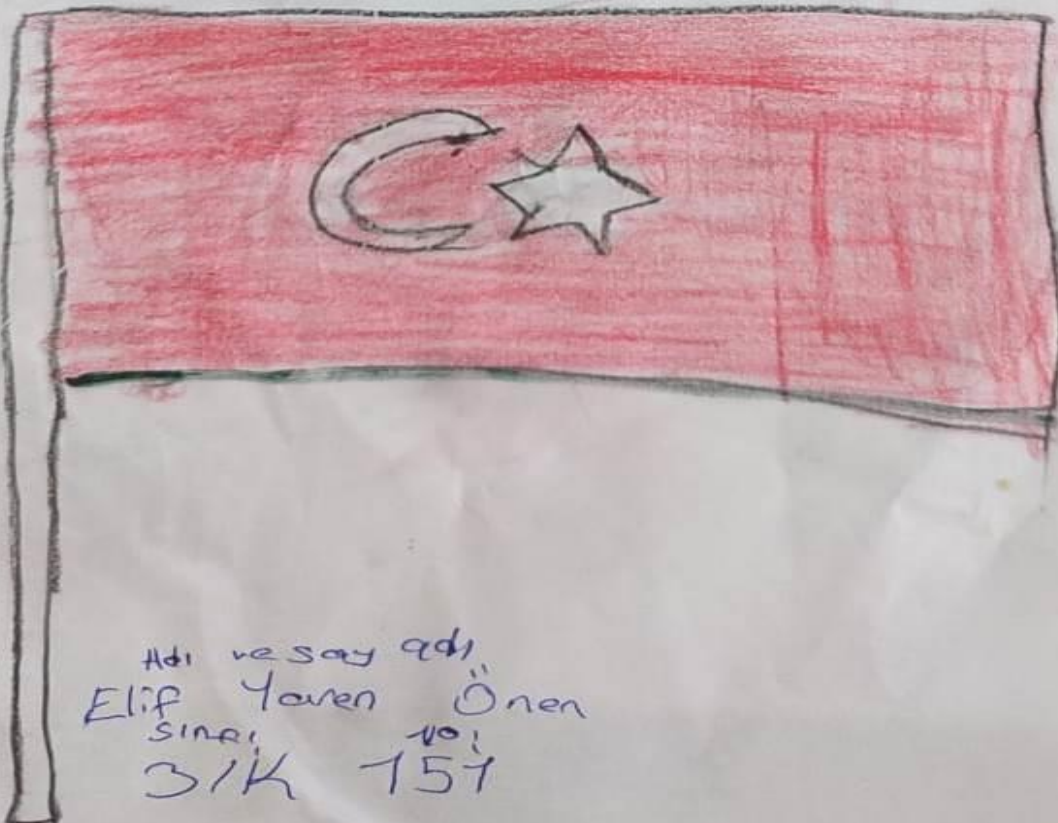 Adı ve say adı
Elif Yaren Önen
Sınıfı No:
3/K 151